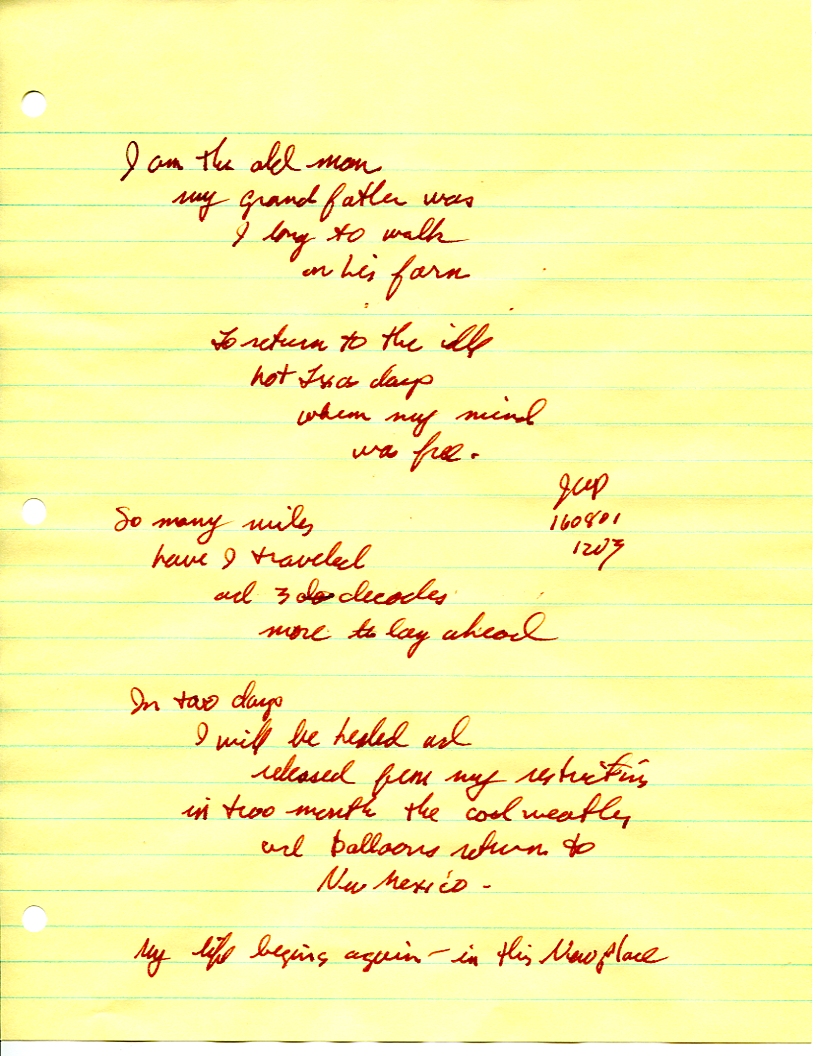 I am the old man
my grand father was
I long to walk
on his farm
To return to the idle
hot Texas days
when my mind
was free.
JWP
160801
1203
So many miles
have I traveled
and 3 decades
more to lay ahead
In two days
I will be healed and
released from my restrictions
in two month the cool weather
and balloons return to
New Mexico -
My life begins again - in this New place